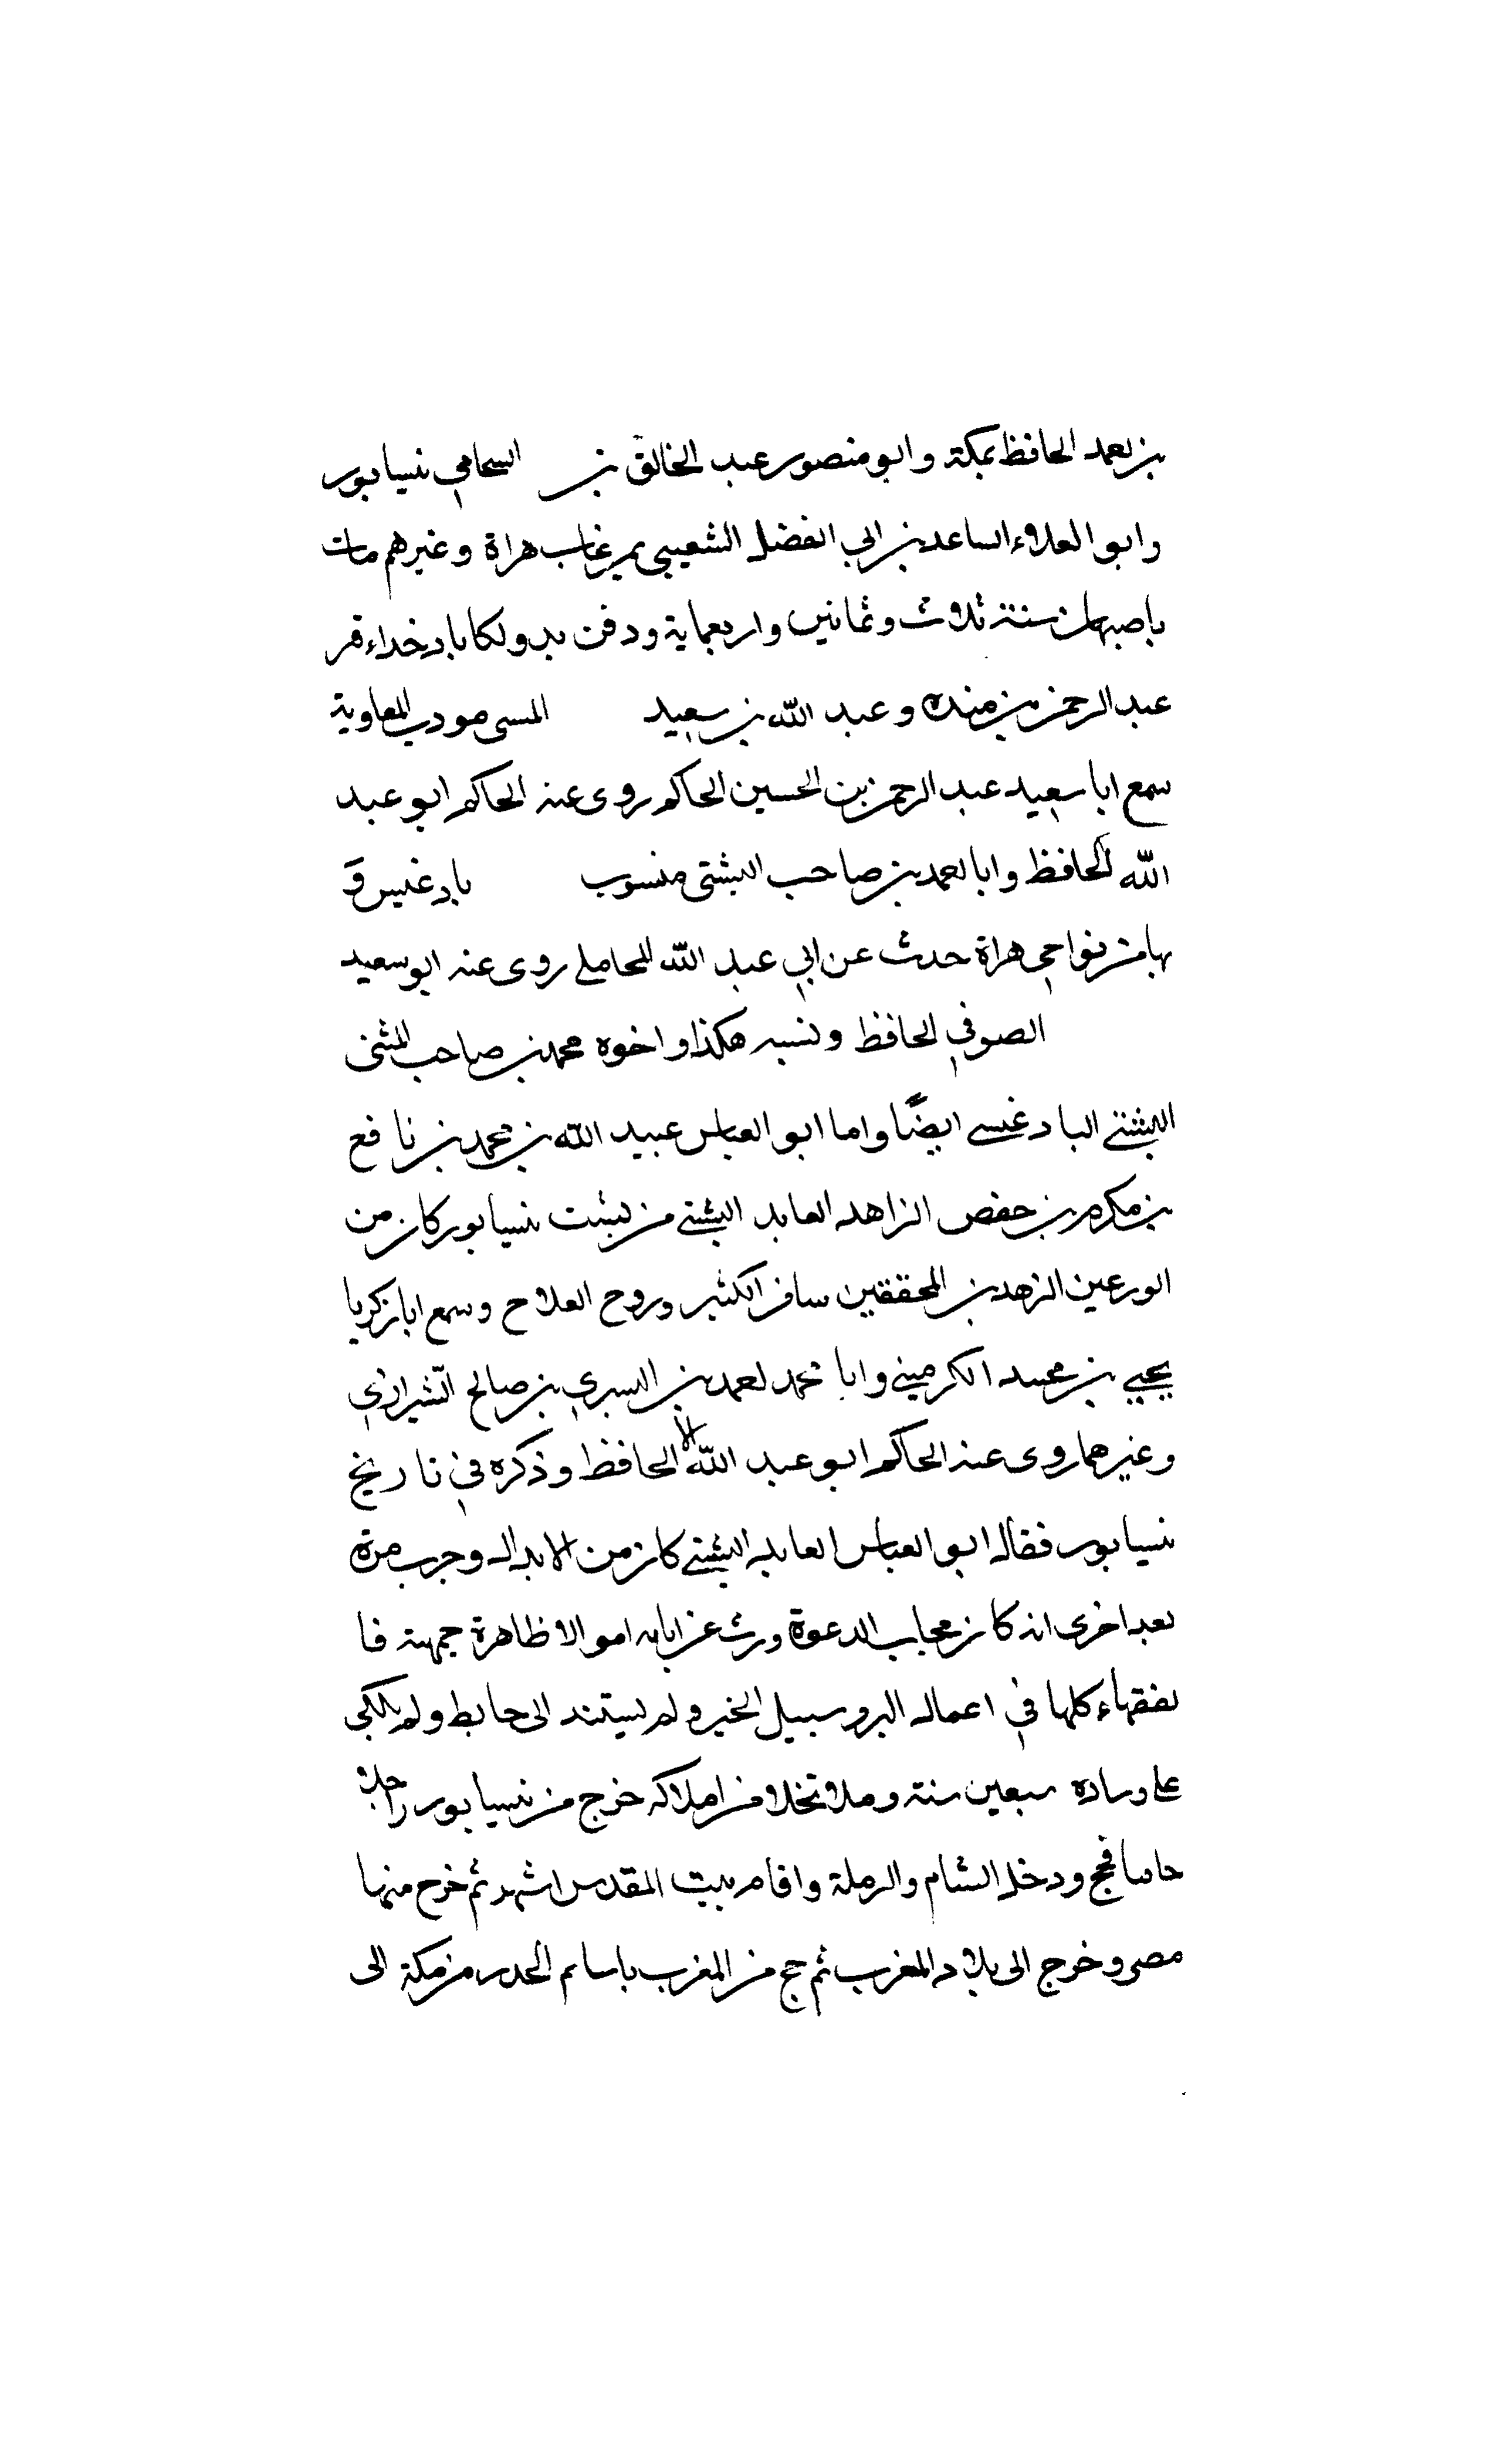 بن احمد الحافظ بمكة وابو منصور عبد الخالق بن السحامي بنيسابور
وابو العلاء الساعد بن ابي الفضل الشعيبي بمرغاب هراة وغيرهم مات
باصبهان سنة ثلاث وثمانين واربعماية ودفن بدولكاباد خداء قر
عبد الرحمن بن منده وعبد الله بن سعيد المسى مودب المعاوية
سمع ابا سعيد عبد الرحمن بن الحسين الحاكم روى عنه الحاكم ابو عبد
الله الحافظ وابا احمد بن صاحب البشتى منسوب بادغيس و
بها من نواحي هراة حدث عن ابي عبد الله المحاملي روى عنه ابو سعيد
الصوفي الحافظ ونسبه هكذا واخوه محمد بن صاحب المثنى
البشتي البادغيسي ايضًا واما ابو العباس عبيد الله بن محمد بن نافع
بن مكرم بن حفص الزاهد العابد البشتي من بشت نيسابور كان من
الورعين الزهد بن المحققين سافر الكثير وروح العلاح وسمع ابا زكريا
يحيي بن محمد الكرميني وابا محمد احمد بن السري بن صالح الشيرازي
وغيرهما روى عنه الحاكم ابو عبد الله الحافظ وذكره في تاريخ
نيسابور فقال ابو العباس العابد البشتي كان من الابدال وجرب مرة
بعد اخرى انه كان مجاب الدعوة ورث عن ابايه اموالا ظاهرة جمهة فا
نفقهاء كلها في اعمال البر وسبيل الخير ولم يستند الى حايط ولم يتكى
على وسادة سبعين سنة وملا تخلا من املاكه خرج من نيسابور راجلا
حاسا فحج ودخل الشام والرملة واقام ببيت المقدس اشهر ثم خرج منها
مصر وخرج الى بلاد المغرب ثم حج من المغرب باسام الحدر من مكة الى